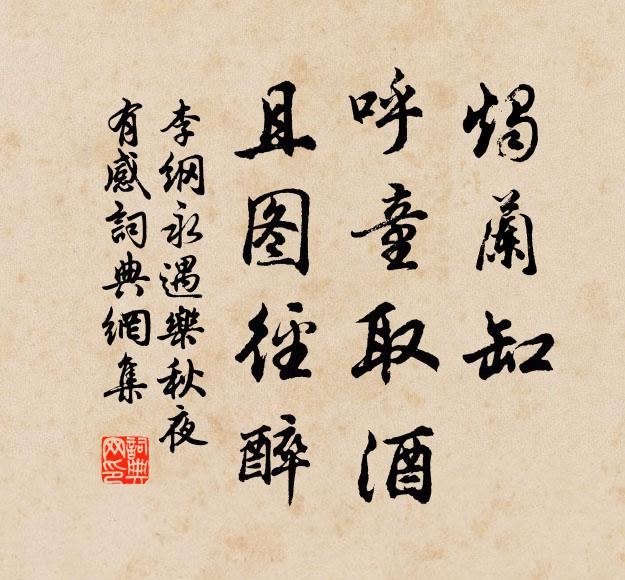 烛蘭缸
呼童取酒
且图徑醉
李綱永遇樂秋夜
有感詞典網集
詞典
网印